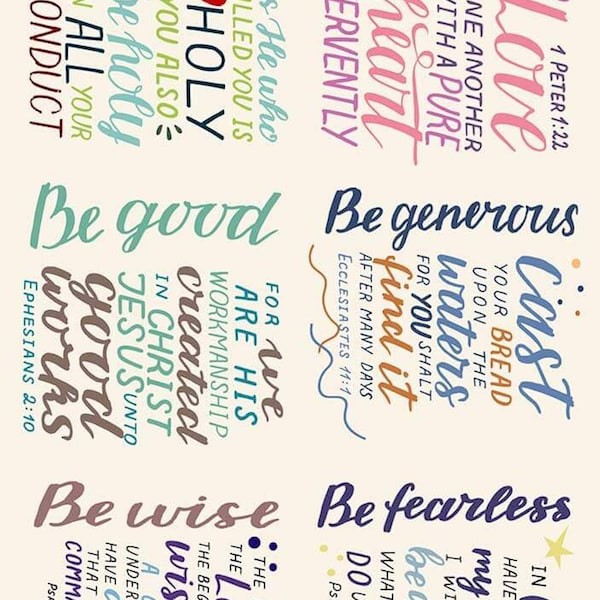 s He who
LLED YOU IS
HOLY
YOU ALSO
be holy
N ALL YOUR
ONDUCT
1 PETER 1:22
Love
NE ANOTHER
WITH A PURE
heart
ERVENTLY
Be good
FOR we
ARE HIS
WORKMANSHIP
created
IN CHRIST
JESUS UNTO
good
works
EPHESIANS 2:10
Be generous
Cast
YOUR BREAD
UPON THE
waters
FOR YOU SHALT
find it
AFTER MANY DAYS
ECCLESIASTES 11:1
Be wise
THE
THE L
THE BEG
wis
A
UNDER
HAVE
THAT
COMM
Be fearless
IN
HAVE
my
I WI
be
WHAT
DO
Ps